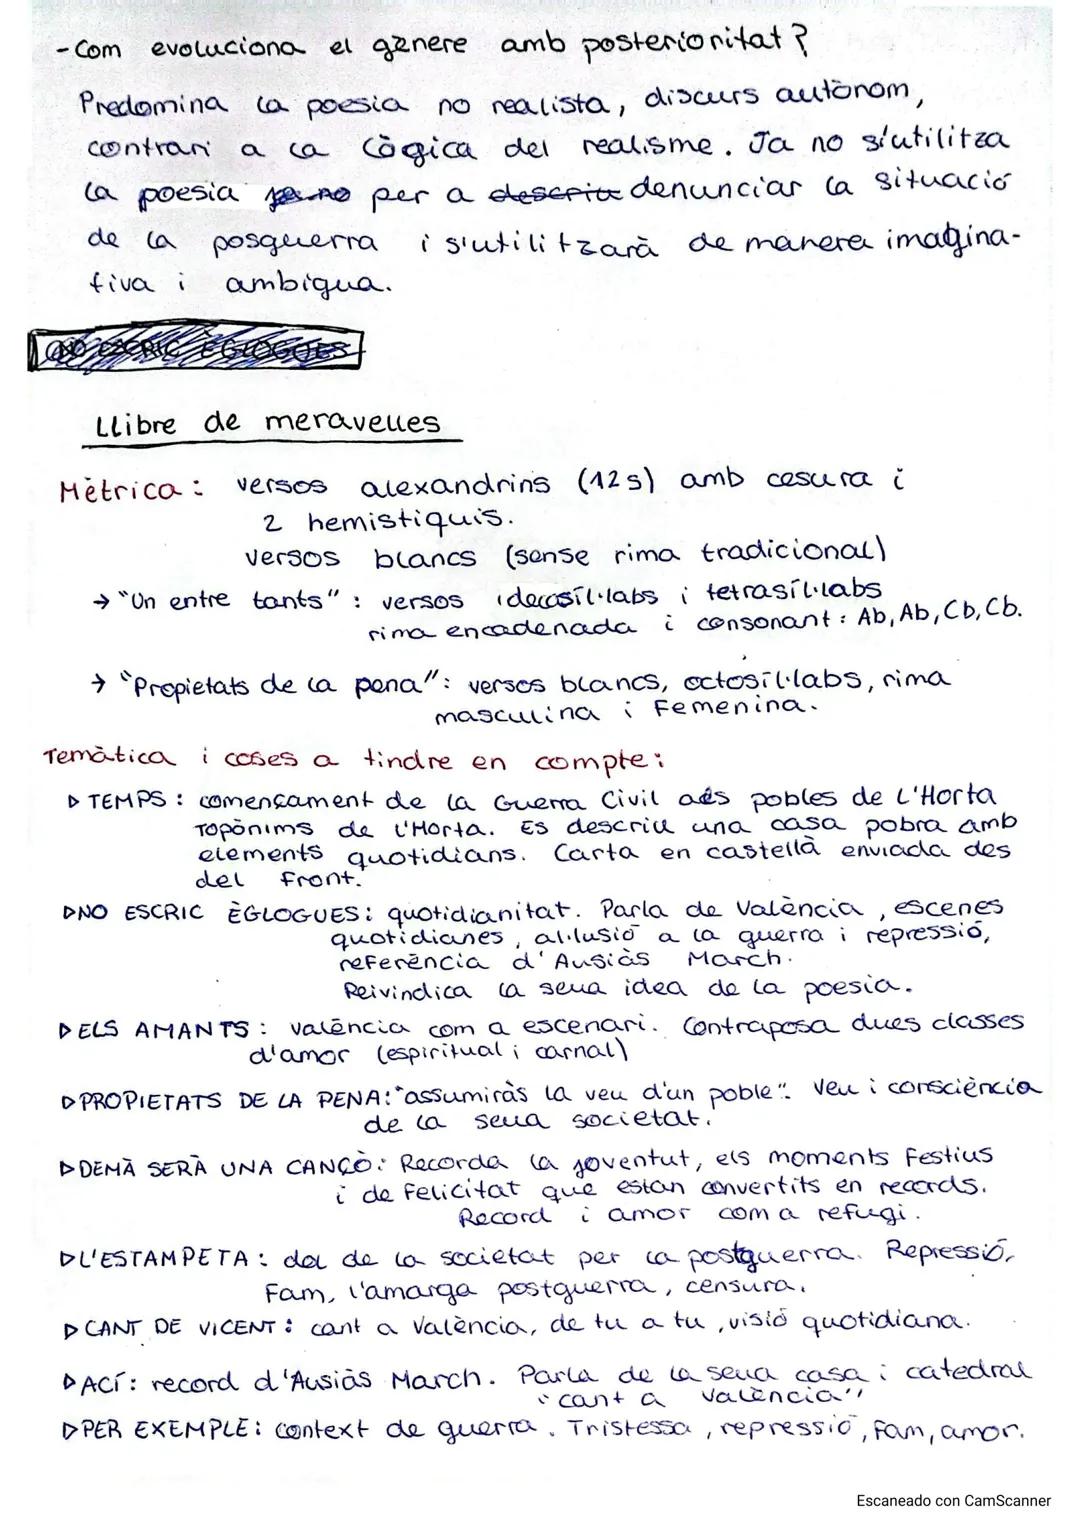 -Com evoluciona el gènere amb posterioritat?
Predomina la poesia no realista, discurs autònom,
contrari a la lògica del realisme. Ja no s'utilitza
la poesia ja no per a descriu denunciar la situació
de la posguerra i s'utilitzarà de manera imagina-
tiva i ambigua.
NO ESCRIC ÈGLOGUES
Llibre de meravelles
Mètrica: versos alexandrins (12s) amb cesura i
2 hemistiquis.
versos blancs (sense rima tradicional)
→ "Un entre tants": versos decasíl·labs i tetrasíl·labs
rima encadenada i consonant: Ab, Ab, Cb, Cb.
→ "Propietats de la pena": versos blancs, octosíl·labs, rima
masculina i femenina.
Temàtica i coses a tindre en compte:
▷ TEMPS: començament de la Guerra Civil als pobles de L'Horta
Topònims de L'Horta. Es descriu una casa pobra amb
elements quotidians. Carta en castellà enviada des
del front.
▷NO ESCRIC ÈGLOGUES: quotidianitat. Parla de València, escenes
quotidianes, al·lusió a la guerra i repressió,
referència d'Ausiàs March.
Reivindica la seua idea de la poesia.
▷ELS AMANTS: València com a escenari. Contraposa dues classes
d'amor (espiritual i carnal)
▷PROPIETATS DE LA PENA: "assumiràs la veu d'un poble". Veu i consciència
de la seua societat.
▷DEMÀ SERÀ UNA CANÇÓ: Recorda la joventut, els moments festius
i de felicitat que estan convertits en records.
Record i amor com a refugi.
▷L'ESTAMPETA: dol de la societat per la postguerra. Repressió,
Fam, l'amarga postguerra, censura.
▷CANT DE VICENT: cant a València, de tu a tu, visió quotidiana.
▷ACÍ: record d'Ausiàs March. Parla de la seua casa i catedral
"cant a València"
▷PER EXEMPLE: context de guerra. Tristessa, repressió, fam, amor.
Escaneado con CamScanner